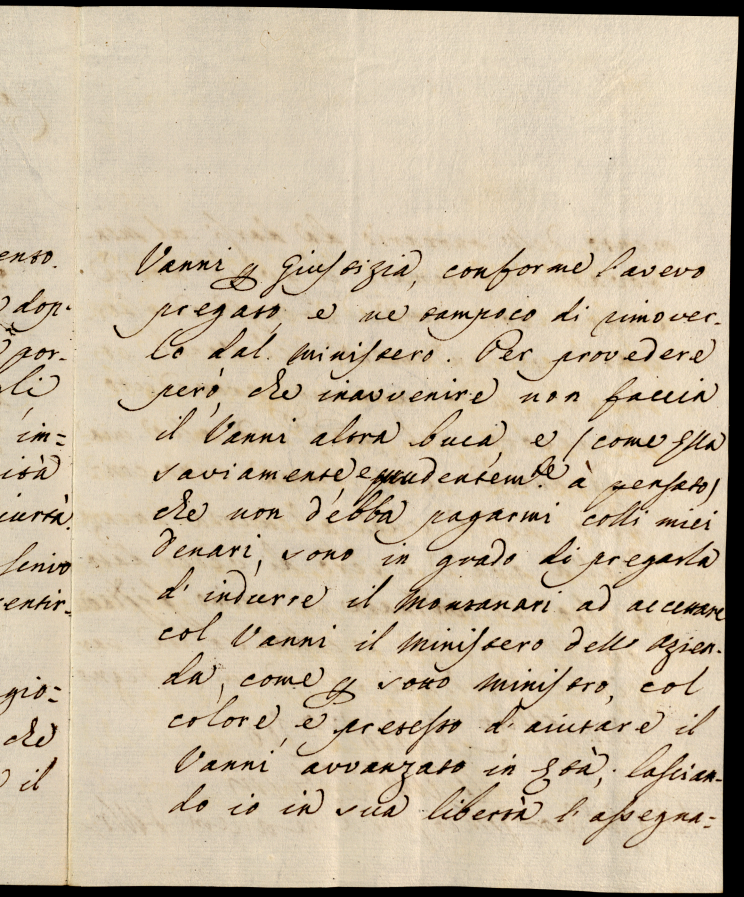 ento.
dop-
por-
li
im=
ità
ciurtà
senivo
sentir-
gio=
che
il
Vanni p Giustizia, conforme l'avevo
pregato, e ne tampoco di rimover-
lo dal ministero. Per provedere
però che inavvenire non faccia
il Vanni altra buca, e (come Ella
saviamente, e prudentem.te à pensato)
che non debba pagarmi colli miei
denari, sono in grado di pregarla
d'indurre il Montanari ad accettare
col Vanni il ministero dell'azien-
da, come p sotto ministro, col
colore, e pretesto d'aiutare il
Vanni avvanzato in Età, lascian-
do io in sua libertà l'assegna=